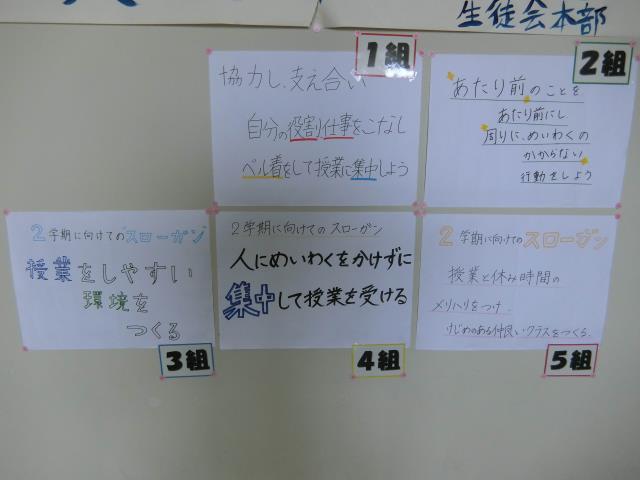 生徒会本部
1組
協力し、支え合い
自分の役割、仕事をこなし
ベル着をして授業に集中しよう
2組
あたり前のことを
あたり前にし
周りに、めいわくの
かからない
行動をしよう
2学期に向けての"スローガン"
授業をしやすい
環境を
つくる
3組
2学期に向けてのスローガン
人にめいわくをかけずに
集中して授業を受ける
4組
2学期に向けてのスローガン
授業と休み時間の
メリハリをつけ、
けじめのある仲良いクラスをつくる。
5組